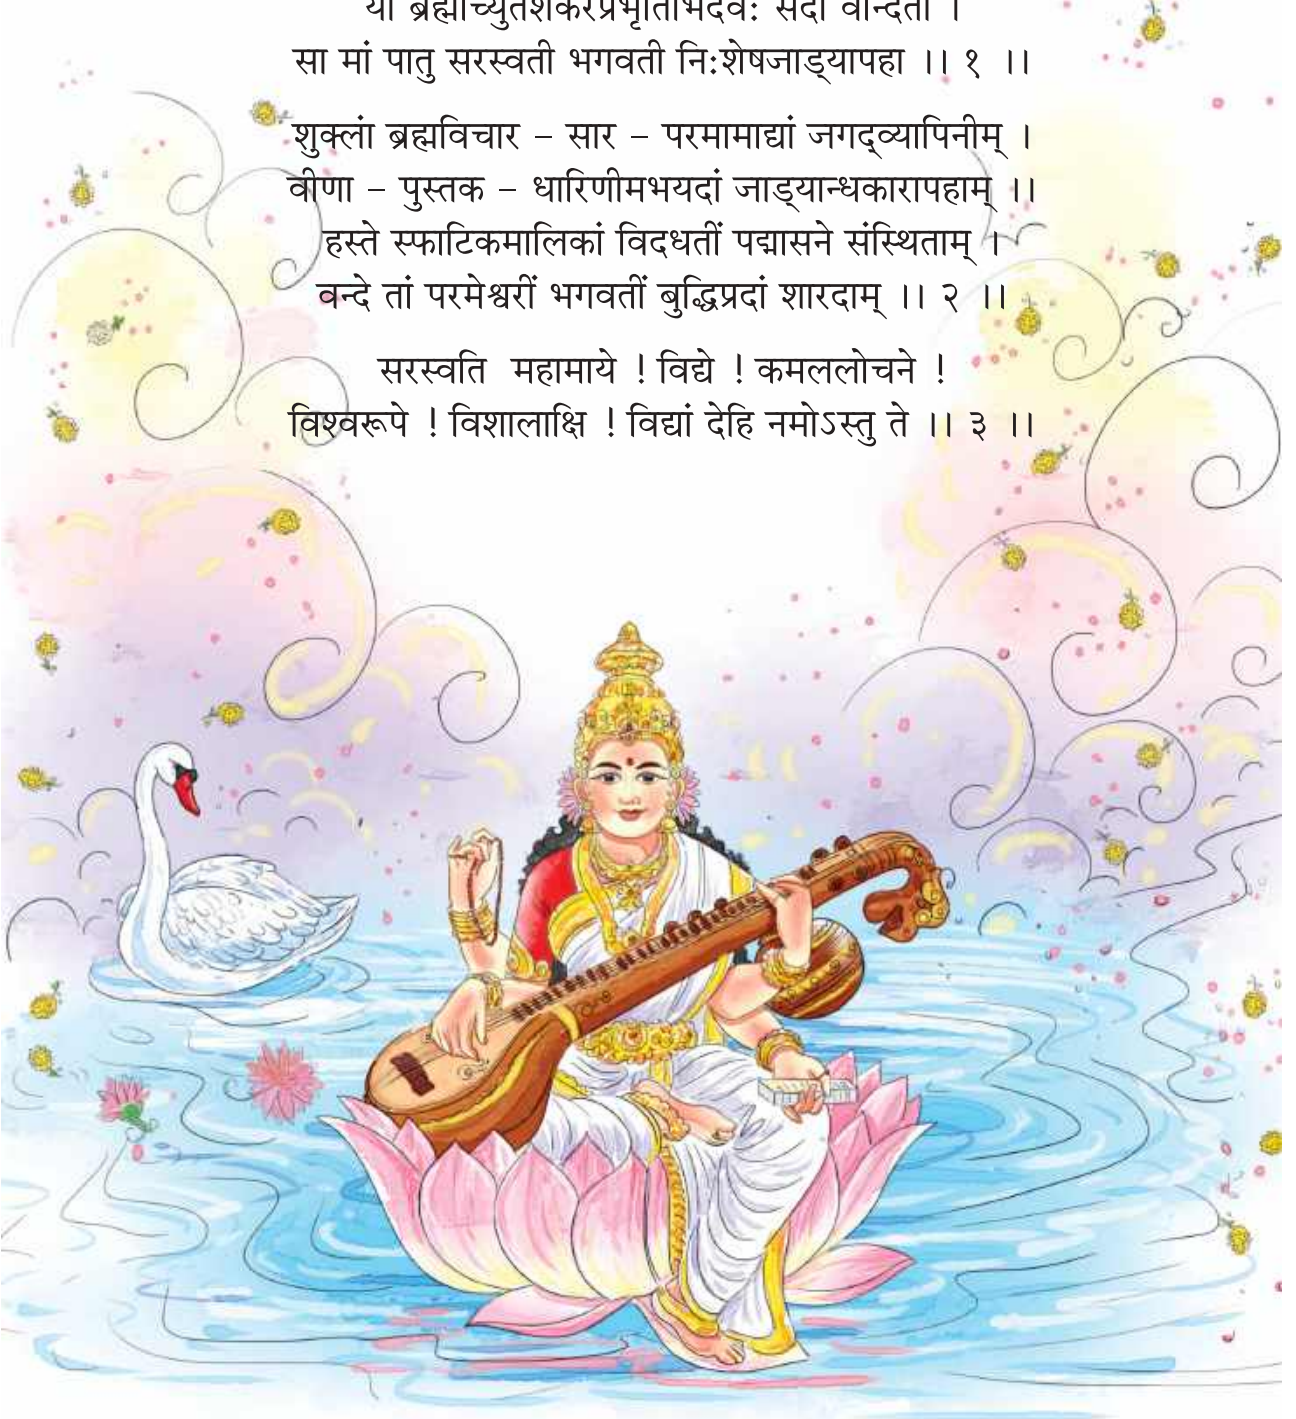 या ब्रह्माच्युतशंकरप्रभृतिभिर्देवैः सदा वन्दिता ।
सा मां पातु सरस्वती भगवती निःशेषजाड्यापहा ।। १ ।।
शुक्लां ब्रह्मविचार – सार – परमामाद्यां जगद्व्यापिनीम् ।
वीणा – पुस्तक – धारिणीमभयदां जाड्यान्धकारापहाम् ।।
हस्ते स्फाटिकमालिकां विदधतीं पद्मासने संस्थिताम् ।
वन्दे तां परमेश्वरीं भगवतीं बुद्धिप्रदां शारदाम् ।। २ ।।
सरस्वति महामाये ! विद्ये ! कमललोचने !
विश्वरूपे ! विशालाक्षि ! विद्यां देहि नमोऽस्तु ते ।। ३ ।।